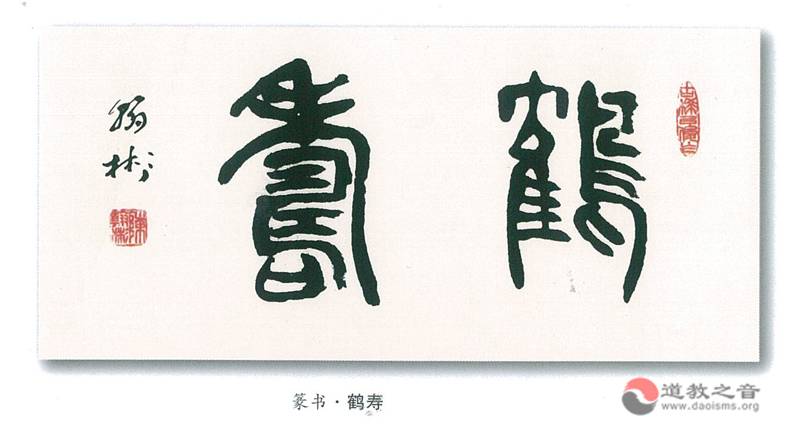 鶴壽
翰彬
篆书·鹤寿
道教之音
www.daoisms.org